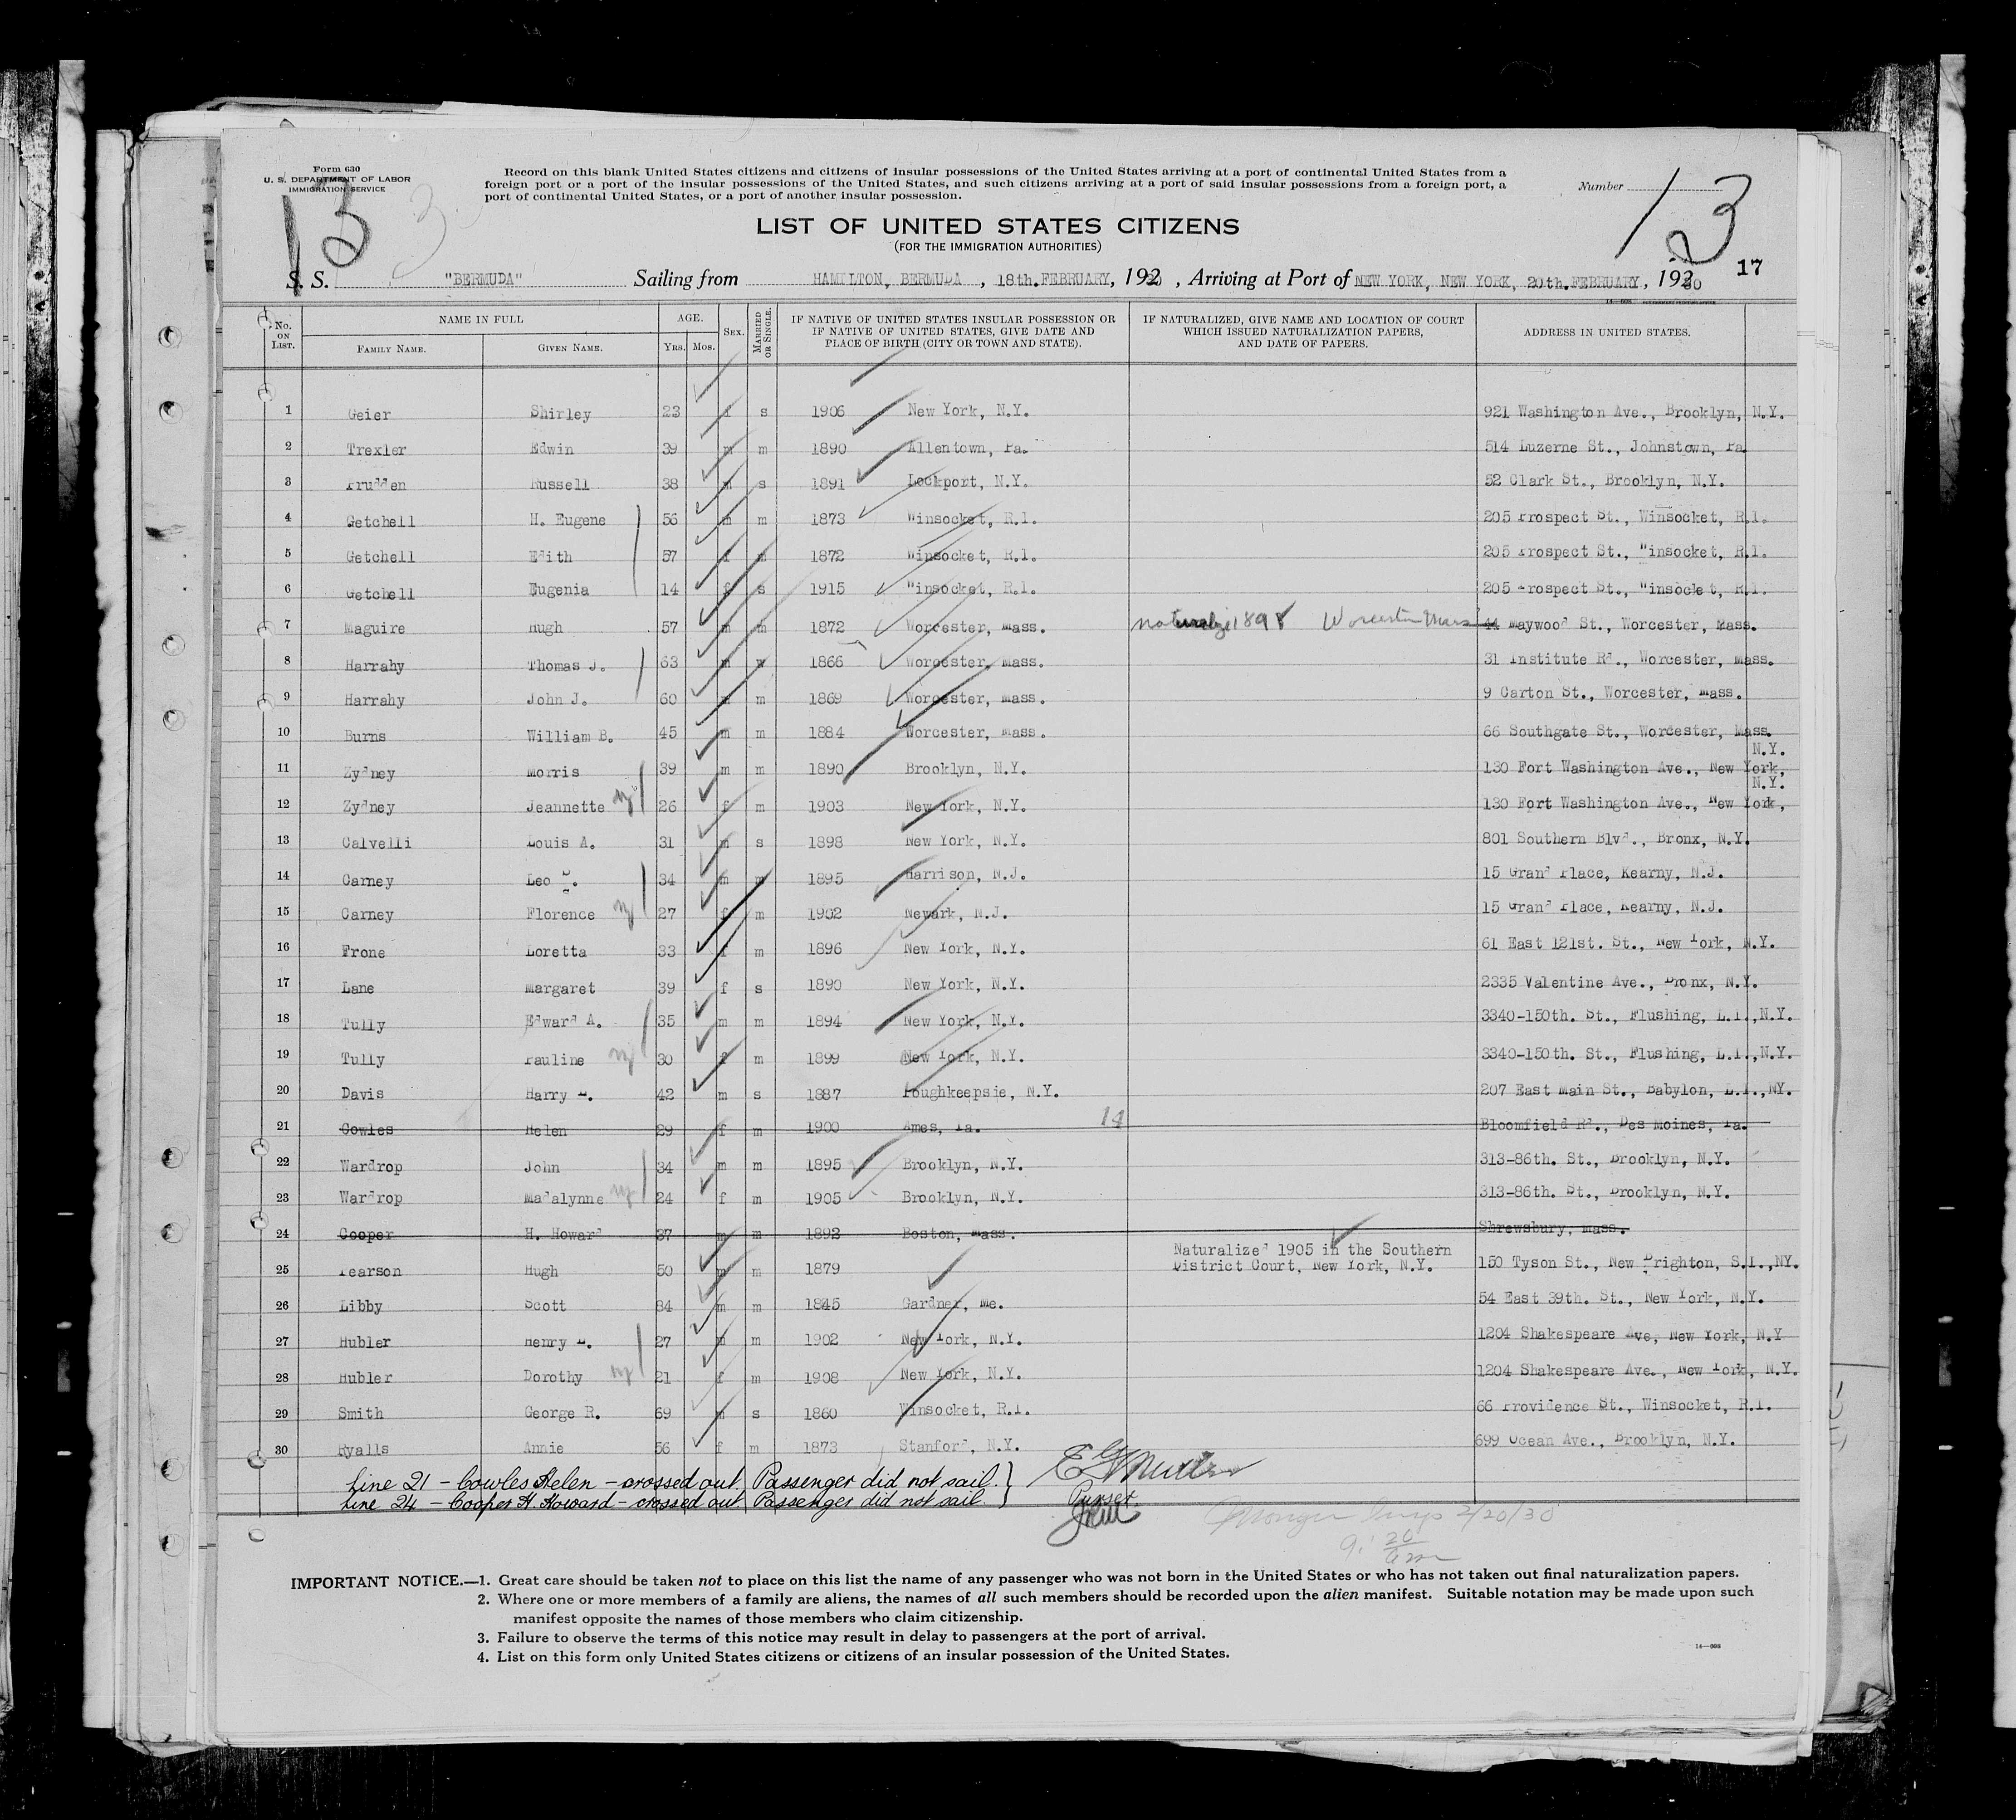 Form 630
U. S. DEPARTMENT OF LABOR
IMMIGRATION SERVICE
13
3
Record on this blank United States citizens and citizens of insular possessions of the United States arriving at a port of continental United States from a
foreign port or a port of the insular possessions of the United States, and such citizens arriving at a port of said insular possessions from a foreign port, a
port of continental United States, or a port of another insular possession.
Number
13
LIST OF UNITED STATES CITIZENS
(FOR THE IMMIGRATION AUTHORITIES)
S. S. "BERMUDA" Sailing from HAMILTON, BERMUDA , 18th. FEBRUARY, 1930 , Arriving at Port of NEW YORK, NEW YORK, 20th. FEBRUARY, 1930
17
14—608 GOVERNMENT PRINTING OFFICE
No. ON LIST. NAME IN FULL FAMILY NAME. GIVEN NAME. AGE. YRS. MOS. SEX. MARRIED OR SINGLE. IF NATIVE OF UNITED STATES INSULAR POSSESSION OR IF NATIVE OF UNITED STATES, GIVE DATE AND PLACE OF BIRTH (CITY OR TOWN AND STATE). IF NATURALIZED, GIVE NAME AND LOCATION OF COURT WHICH ISSUED NATURALIZATION PAPERS, AND DATE OF PAPERS. ADDRESS IN UNITED STATES.
1 Geier Shirley 23 f s 1906 New York, N.Y. 921 Washington Ave., Brooklyn, N.Y.
2 Trexler Edwin 39 m m 1890 Allentown, Pa. 514 Luzerne St., Johnstown, Pa
3 Prudden Russell 38 m s 1891 Lockport, N.Y. 52 Clark St., Brooklyn, N.Y.
4 Getchell H. Eugene 56 m m 1873 Winsocket, R.I. 205 Prospect St., Winsocket, R.I.
5 Getchell Edith 57 f m 1872 Winsocket, R.I. 205 Prospect St., "insocket, R.I.
6 Getchell Eugenia 14 f s 1915 "insocket, R.I. 205 Prospect St., "insocket, R.I.
7 Maguire Hugh 57 m m 1872 Worcester, Mass. 1898 Worcester Mass 44 Maywood St., Worcester, Mass.
8 Harrahy Thomas J. 63 m w 1866 Worcester, Mass. 31 Institute Rd., Worcester, Mass.
9 Harrahy John J. 60 m m 1869 Worcester, Mass. 9 Carton St., Worcester, Mass.
10 Burns William B. 45 m m 1884 Worcester, Mass. 66 Southgate St., Worcester, Mass.
11 Zydney Morris 39 m m 1890 Brooklyn, N.Y. 130 Fort Washington Ave., New York, N.Y.
12 Zydney Jeannette 26 f m 1903 New York, N.Y. 130 Fort Washington Ave., New York, N.Y.
13 Calvelli Louis A. 31 m s 1898 New York, N.Y. 801 Southern Blvd., Bronx, N.Y.
14 Carney Leo 34 m m 1895 Harrison, N.J. 15 Grand Place, Kearny, N.J.
15 Carney Florence 27 f m 1902 Newark, N.J. 15 Grand Place, Kearny, N.J.
16 Frone Loretta 33 f m 1896 New York, N.Y. 61 East 121st. St., New York, N.Y.
17 Lane Margaret 39 f s 1890 New York, N.Y. 2335 Valentine Ave., Bronx, N.Y.
18 Tully Edward A. 35 m m 1894 New York, N.Y. 3340-150th. St., Flushing, L.I.,N.Y.
19 Tully Pauline 30 f m 1899 New York, N.Y. 3340-150th. St., Flushing, L.I.,N.Y.
20 Davis Harry 42 m s 1887 Poughkeepsie, N.Y. 207 East Main St., Babylon, L.I.,NY.
21 Cowles Helen 29 f m 1900 Ames, Ia. 14 Bloomfield Rd., Des Moines, Ia.
22 Wardrop John 34 m m 1895 Brooklyn, N.Y. 313-86th. St., Brooklyn, N.Y.
23 Wardrop Madalynne 24 f m 1905 Brooklyn, N.Y. 313-86th. St., Brooklyn, N.Y.
24 Cooper H. Howard 37 m m 1892 Boston, Mass. Shrewsbury, Mass.
25 Pearson Hugh 50 m m 1879 Naturalized 1905 in the Southern District Court, New York, N.Y. 150 Tyson St., New Brighton, S.I.,NY.
26 Libby Scott 84 m m 1845 Gardner, Me. 54 East 39th. St., New York, N.Y.
27 Hubler Henry 27 m m 1902 New York, N.Y. 1204 Shakespeare Ave, New York, N.Y
28 Hubler Dorothy 21 f m 1908 New York, N.Y. 1204 Shakespeare Ave., New York, N.Y.
29 Smith George R. 69 m s 1860 Winsocket, R.I. 66 Providence St., Winsocket, R.I.
30 Ryalls Annie 56 f m 1873 Stanford, N.Y. 699 Ocean Ave., Brooklyn, N.Y.
Line 21 – Cowles Helen – crossed out. Passenger did not sail.
Line 24 – Cooper H. Howard – crossed out. Passenger did not sail.
Purser.
2/20/30
9:20 am
IMPORTANT NOTICE.—1. Great care should be taken not to place on this list the name of any passenger who was not born in the United States or who has not taken out final naturalization papers.
2. Where one or more members of a family are aliens, the names of all such members should be recorded upon the alien manifest. Suitable notation may be made upon such
manifest opposite the names of those members who claim citizenship.
3. Failure to observe the terms of this notice may result in delay to passengers at the port of arrival.
4. List on this form only United States citizens or citizens of an insular possession of the United States.
14—608